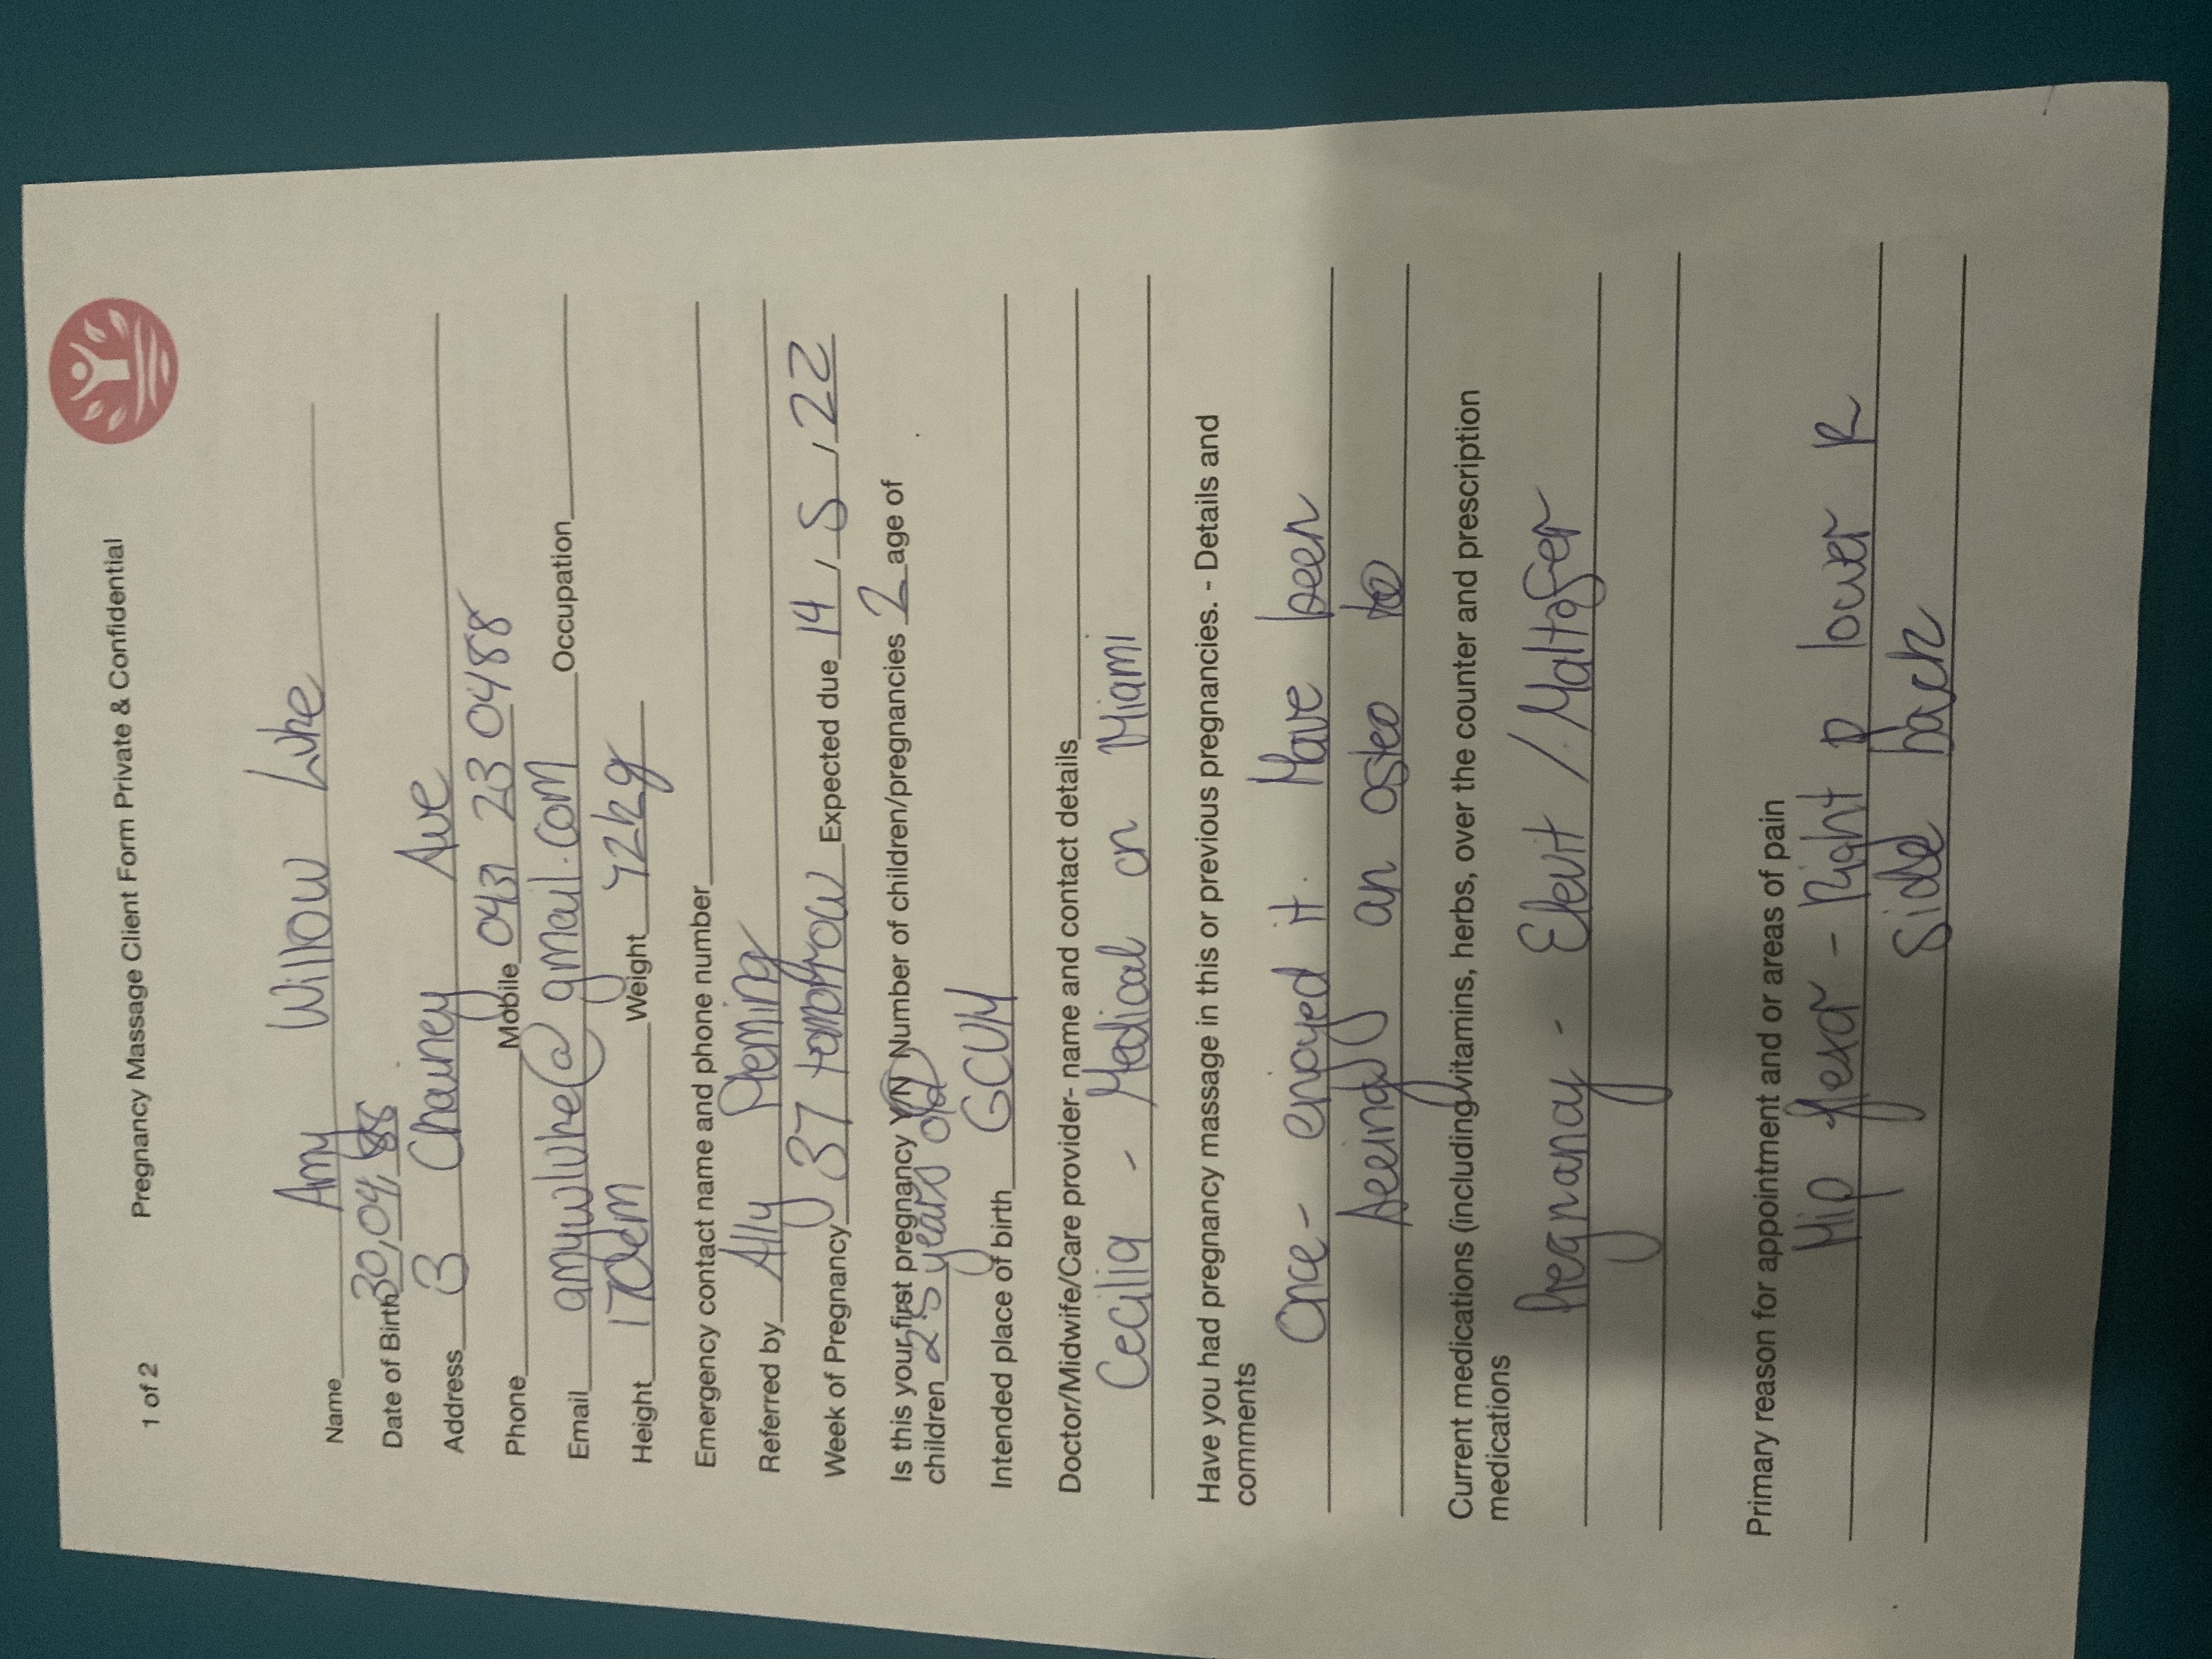 1 of 2 Pregnancy Massage Client Form Private & Confidential
Name Amy Willow Luke
Date of Birth 30,04,88
Address 3 Chauney Ave
Phone Mobile 0431 23 0488
Email amywluke@gmail.com Occupation
Height 170cm Weight 72kg
Emergency contact name and phone number
Referred by Ally Fleming
Week of Pregnancy 37 tomorrow Expected due 14/5/22
Is this your first pregnancy Y/N Number of children/pregnancies 2 age of
children 2.5 years old
Intended place of birth GCUH
Doctor/Midwife/Care provider- name and contact details
Cecilia - Medical on Miami
Have you had pregnancy massage in this or previous pregnancies. - Details and
comments
Once - enjoyed it. Have been
seeing an osteo too
Current medications (including vitamins, herbs, over the counter and prescription
medications
Pregnancy - Elevit / Maltofer
Primary reason for appointment and or areas of pain
Hip flexor - Right lower R
Side back